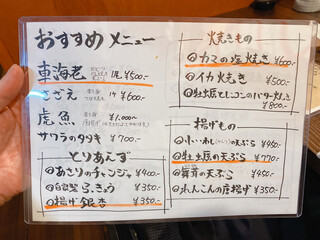 おすすめメニュー
車海老 1尾 ¥500-
さざえ 1ケ ¥600-
虎魚 ¥1,000〜
サワラのタタキ ¥700-
とりあえず
あさりのチャンジャ ¥400-
自家製らっきょう ¥350-
揚げ銀杏 ¥350-
焼きもの
カマの塩焼き ¥600-
イカ焼き ¥500-
牡蠣とレンコンのバター焼き
¥800-
揚げもの
の天ぷら ¥450-
牡蠣の天ぷら ¥770-
舞茸の天ぷら ¥450-
れんこんの唐揚げ ¥350-